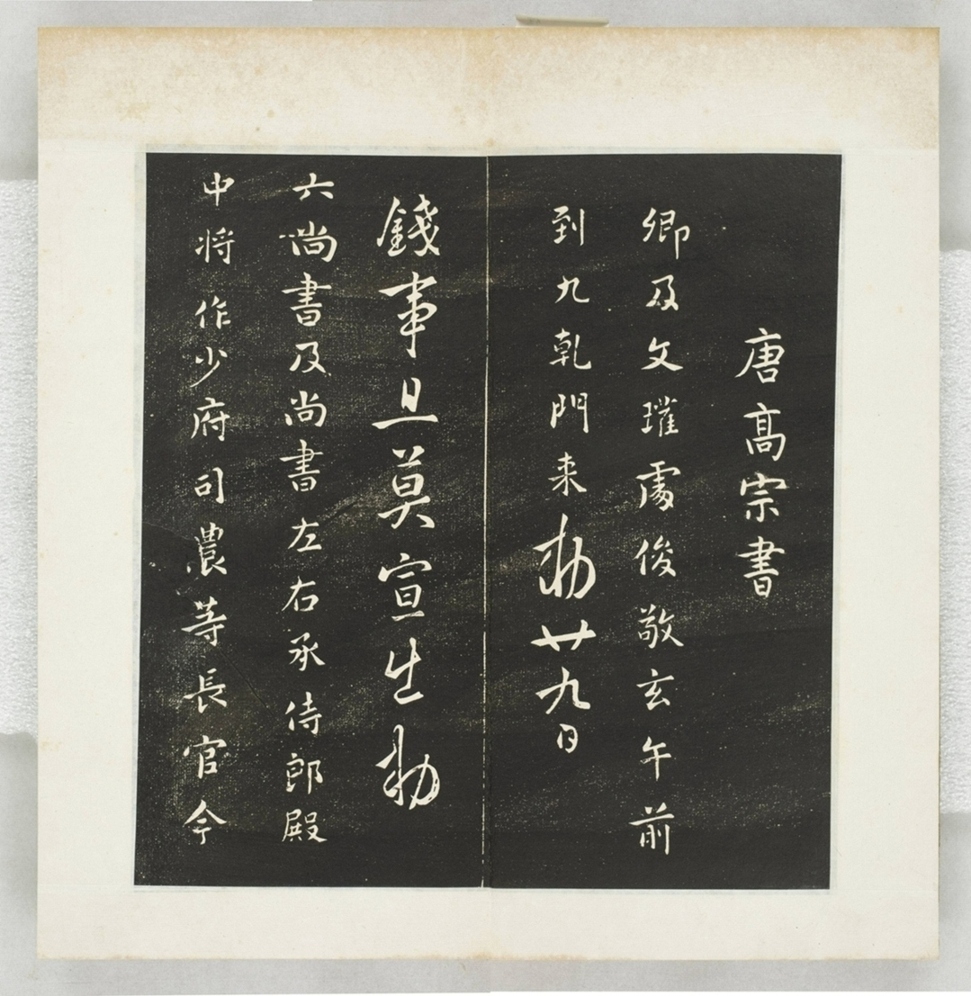 唐高宗書
卿及文瓘處俊敬玄午前
到九乾門来勅廿九日
錢事且莫宣生勅
六尚書及尚書左右丞侍郎殿
中将作少府司農等長官今